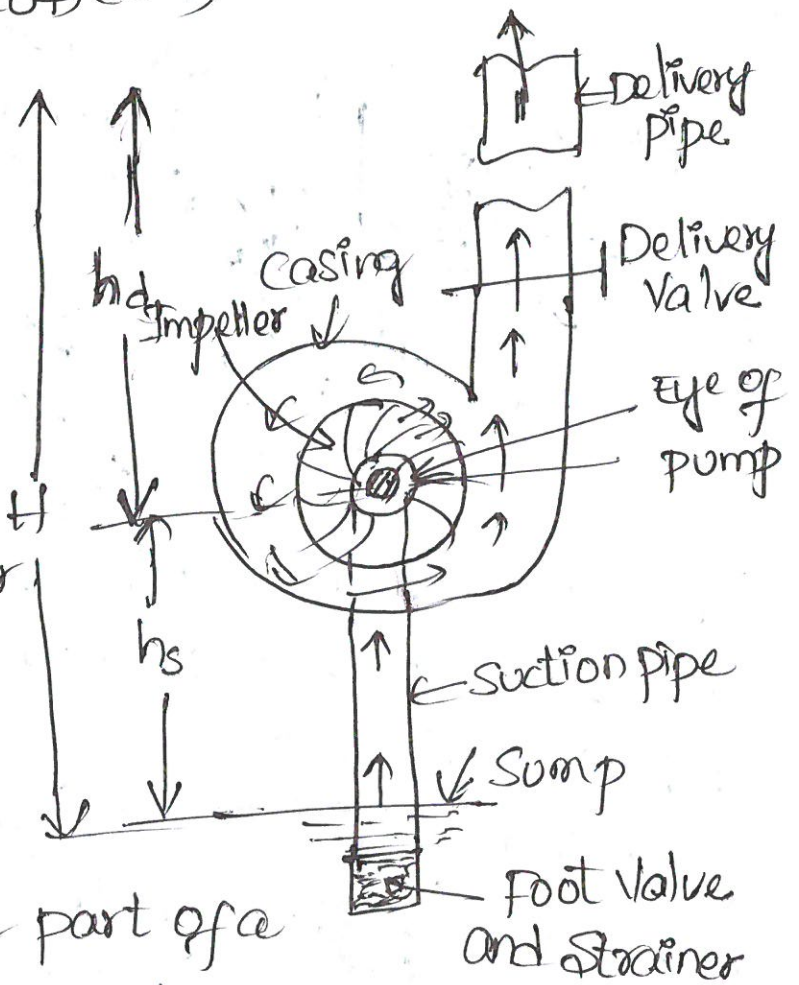 Delivery
pipe
Delivery
Valve
hd
Casing
Impeller
Eye of
pump
H
hs
Suction pipe
Sump
Foot Valve
and Strainer
part of a